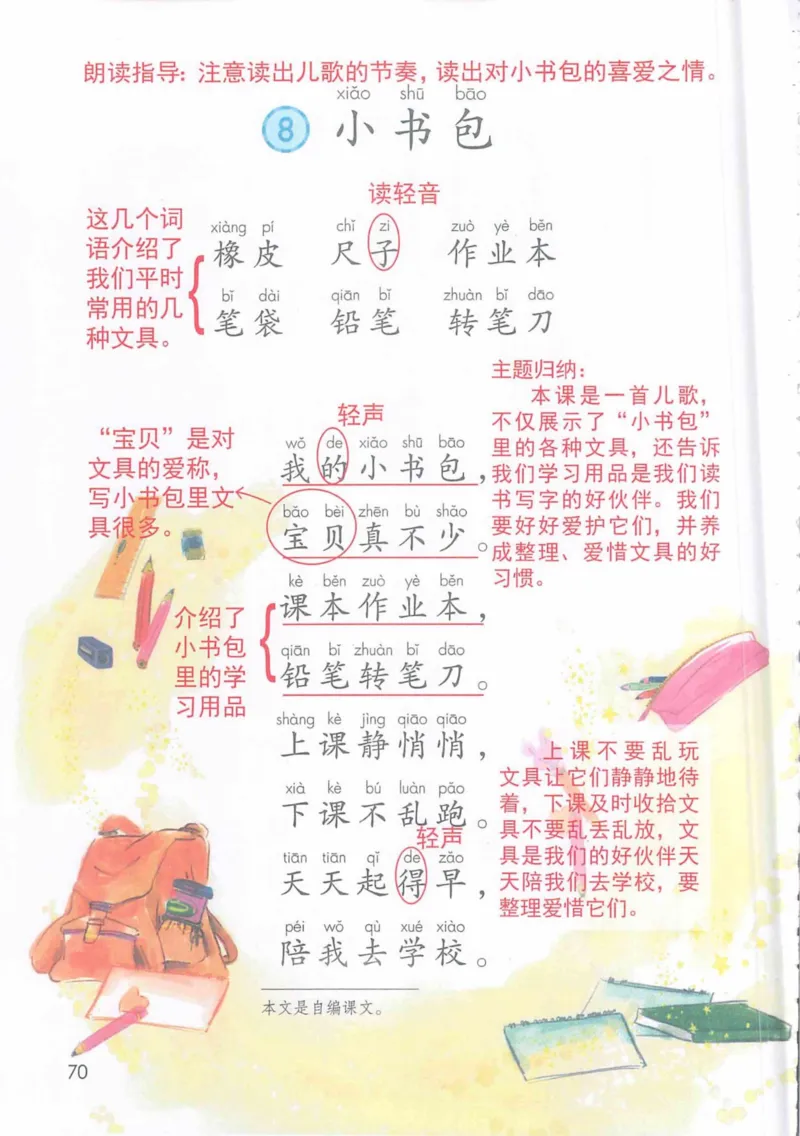 朗读指导：注意读出儿歌的节奏，读出对小书包的喜爱之情。
xiǎo shū bāo
8 小书包
读轻音
这几个词
语介绍了
我们平时
常用的几
种文具。
xiàng pí chǐ zi zuò yè běn
橡皮 尺子 作业本
bǐ dài qiān bǐ zhuàn bǐ dāo
笔袋 铅笔 转笔刀
主题归纳：
本课是一首儿歌，
不仅展示了“小书包”
里的各种文具，还告诉
我们学习用品是我们读
书写字的好伙伴。我们
要好好爱护它们，并养
成整理、爱惜文具的好
习惯。
轻声
“宝贝”是对
文具的爱称，
写小书包里文
具很多。
wǒ de xiǎo shū bāo
我的小书包，
bǎo bèi zhēn bù shǎo
宝贝真不少。
介绍了
小书包
里的学
习用品
kè běn zuò yè běn
课本作业本，
qiān bǐ zhuàn bǐ dāo
铅笔转笔刀。
shàng kè jìng qiāo qiāo
上课静悄悄，
xià kè bú luàn pǎo
下课不乱跑。
轻声
tiān tiān qǐ de zǎo
天天起得早，
péi wǒ qù xué xiào
陪我去学校。
上课不要乱玩
文具让它们静静地待
着，下课及时收拾文
具不要乱丢乱放，文
具是我们的好伙伴天
天陪我们去学校，要
整理爱惜它们。
本文是自编课文。
70